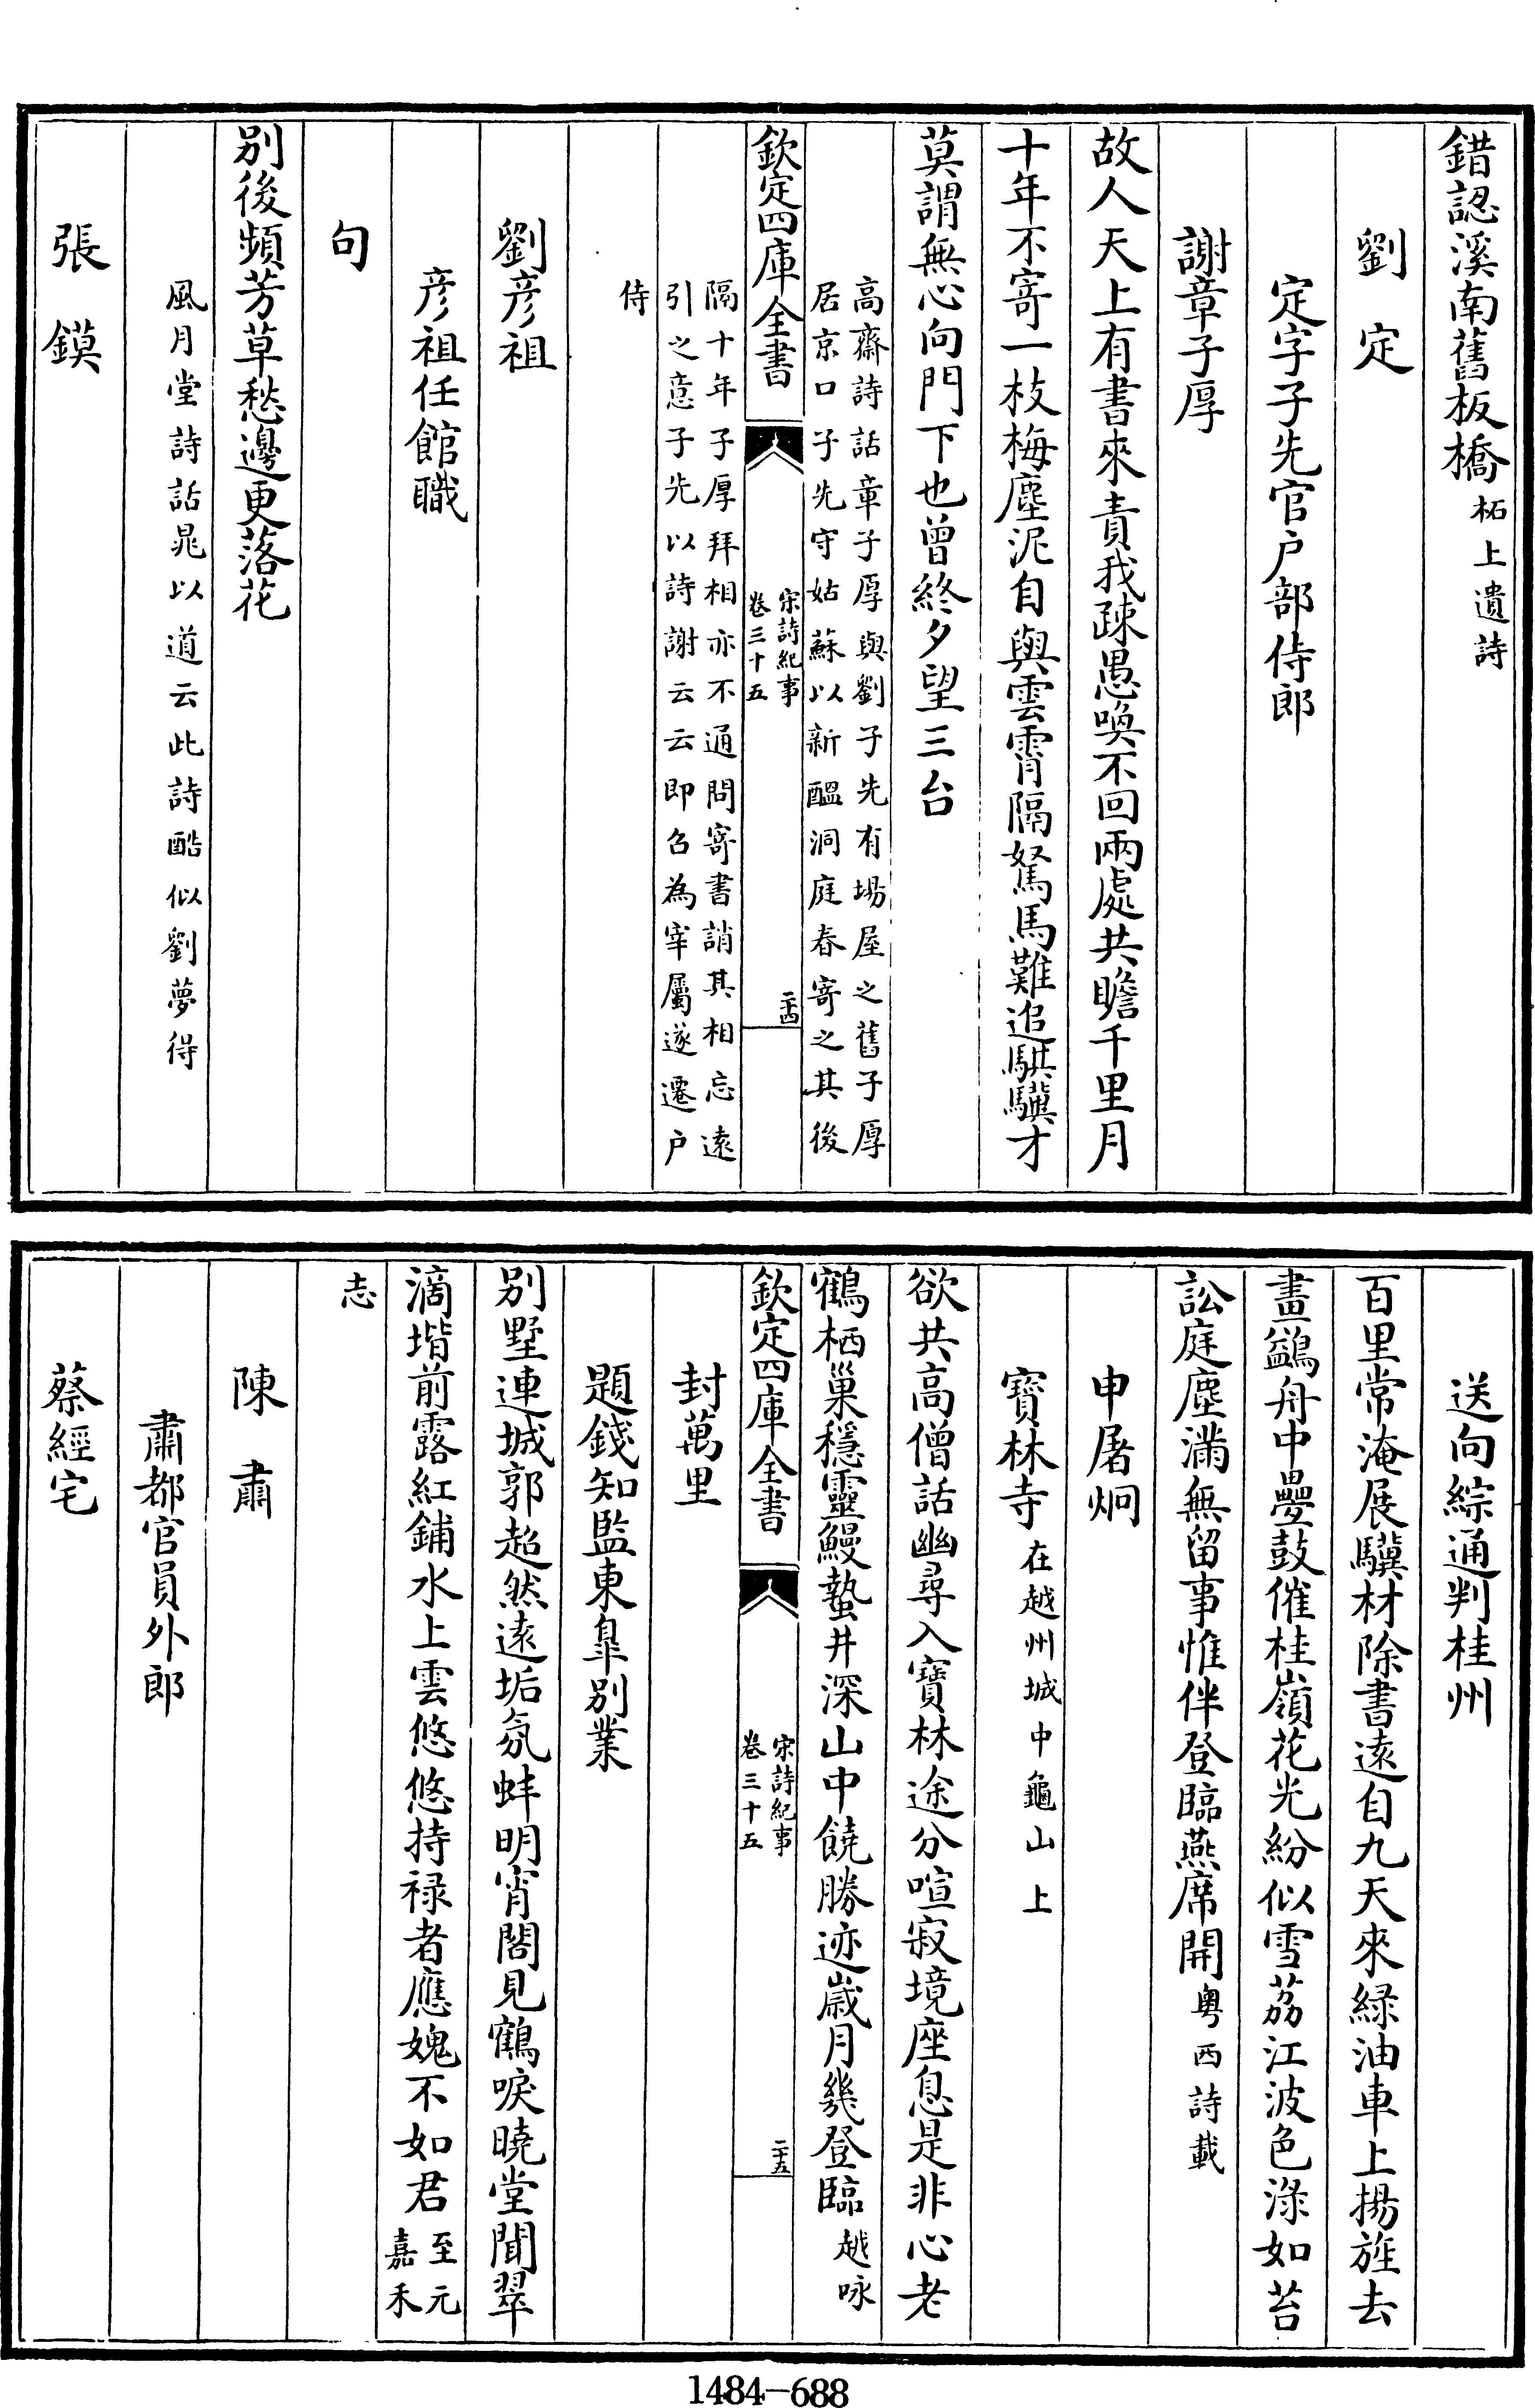 錯認溪南舊板橋柘上遺詩
劉定
定字子先官户部侍郎
謝章子厚
故人天上有書來責我疎愚喚不回兩處共瞻千里月
十年不寄一枝梅塵泥自與雲霄隔駑馬難追騏驥才
莫謂無心向門下也曾終夕望三台
高齋詩話章子厚與劉子先有場屋之舊子厚
居京口子先守姑蘇以新醖洞庭春寄之其後
欽定四庫全書
宋詩紀事
卷三十五
二十四
隔十年子厚拜相亦不通問寄書誚其相忘遠
引之意子先以詩謝云云即召為宰屬遂遷户
侍
劉彦祖
彦祖任館職
句
别後頻芳草愁邊更落花
風月堂詩話晁以道云此詩酷似劉夢得
張鏌
送向綜通判桂州
百里常淹展驥材除書遠自九天來緑油車上揚旌去
畫鷁舟中疊鼓催桂嶺花光紛似雪荔江波色渌如苔
訟庭塵滿無留事惟伴登臨燕席開粤西詩載
申屠炯
寳林寺在越州城中龜山上
欲共高僧話幽尋入寳林途分喧寂境座息是非心老
鶴栖巢穩靈鰻蟄井深山中饒勝迹歲月幾登臨越咏
欽定四庫全書
宋詩紀事
卷三十五
二十五
封萬里
題錢知監東臯别業
别墅連城郭超然遠垢氛蚌明宵閣見鶴唳曉堂聞翠
滴堦前露紅鋪水上雲悠悠持禄者應媿不如君至元
嘉禾
志
陳肅
肅都官員外郎
蔡經宅
1484-688